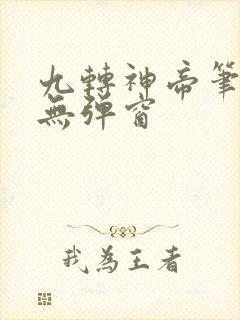 九轉神帝筆
無彈窗
我為王者